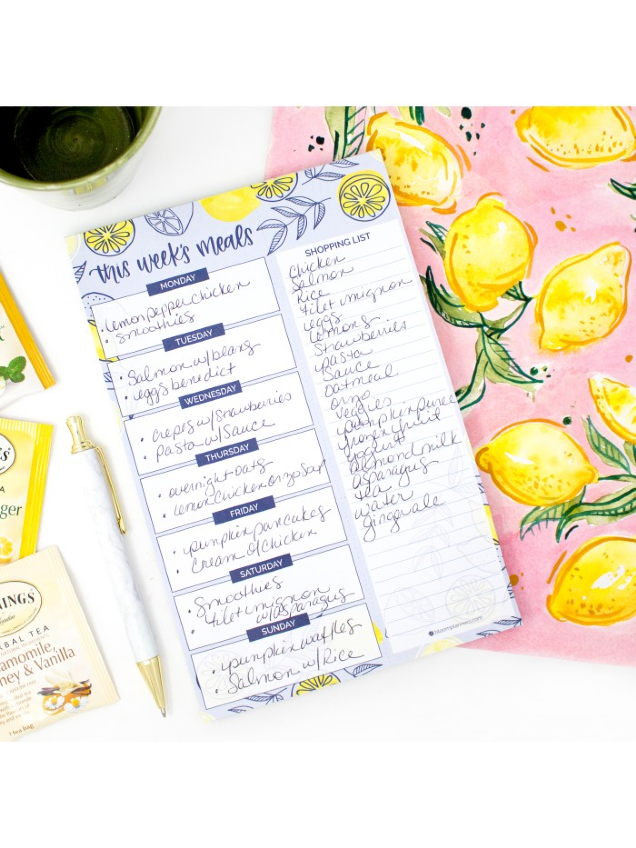 this week's meals
MONDAY
• Lemon pepper chicken
• Smoothies
TUESDAY
• Salmon w/ beans
• eggs benedict
WEDNESDAY
• crepes w/ Strawberries
• Pasta w/ Sauce
THURSDAY
• overnight oats
• lemon chicken orzo soup
FRIDAY
• pumpkin pancakes
• cream of chicken
SATURDAY
• Smoothies
• filet mignon
w/ asparagus
SUNDAY
• pumpkin waffles
• Salmon w/ Rice
SHOPPING LIST
Chicken
Salmon
Rice
filet mignon
eggs
lemons
Strawberries
pasta
Sauce
Oatmeal
orzo
veggies
pumpkin puree
frozen fruit
yogurt
almond milk
asparagus
tea
water
gingerale
bloomplanners.com
NINGS
HERBAL TEA
Chamomile,
Honey & Vanilla
1 tea bag